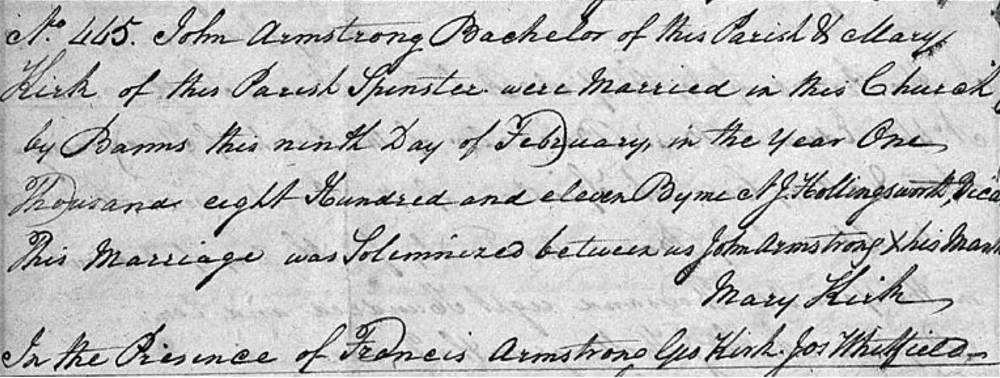 No. 445. John Armstrong Bachelor of this Parish & Mary
Kirk of this Parish Spinster were Married in this Church
by Banns this ninth Day of February, in the Year One
Thousand eight Hundred and eleven By me N J. Hollingsworth, Vica
This Marriage was Solemnized between us John Armstrong X his Mark
Mary Kirk
In the Presence of Francis Armstrong Geo Kirk. Jos Whitfield